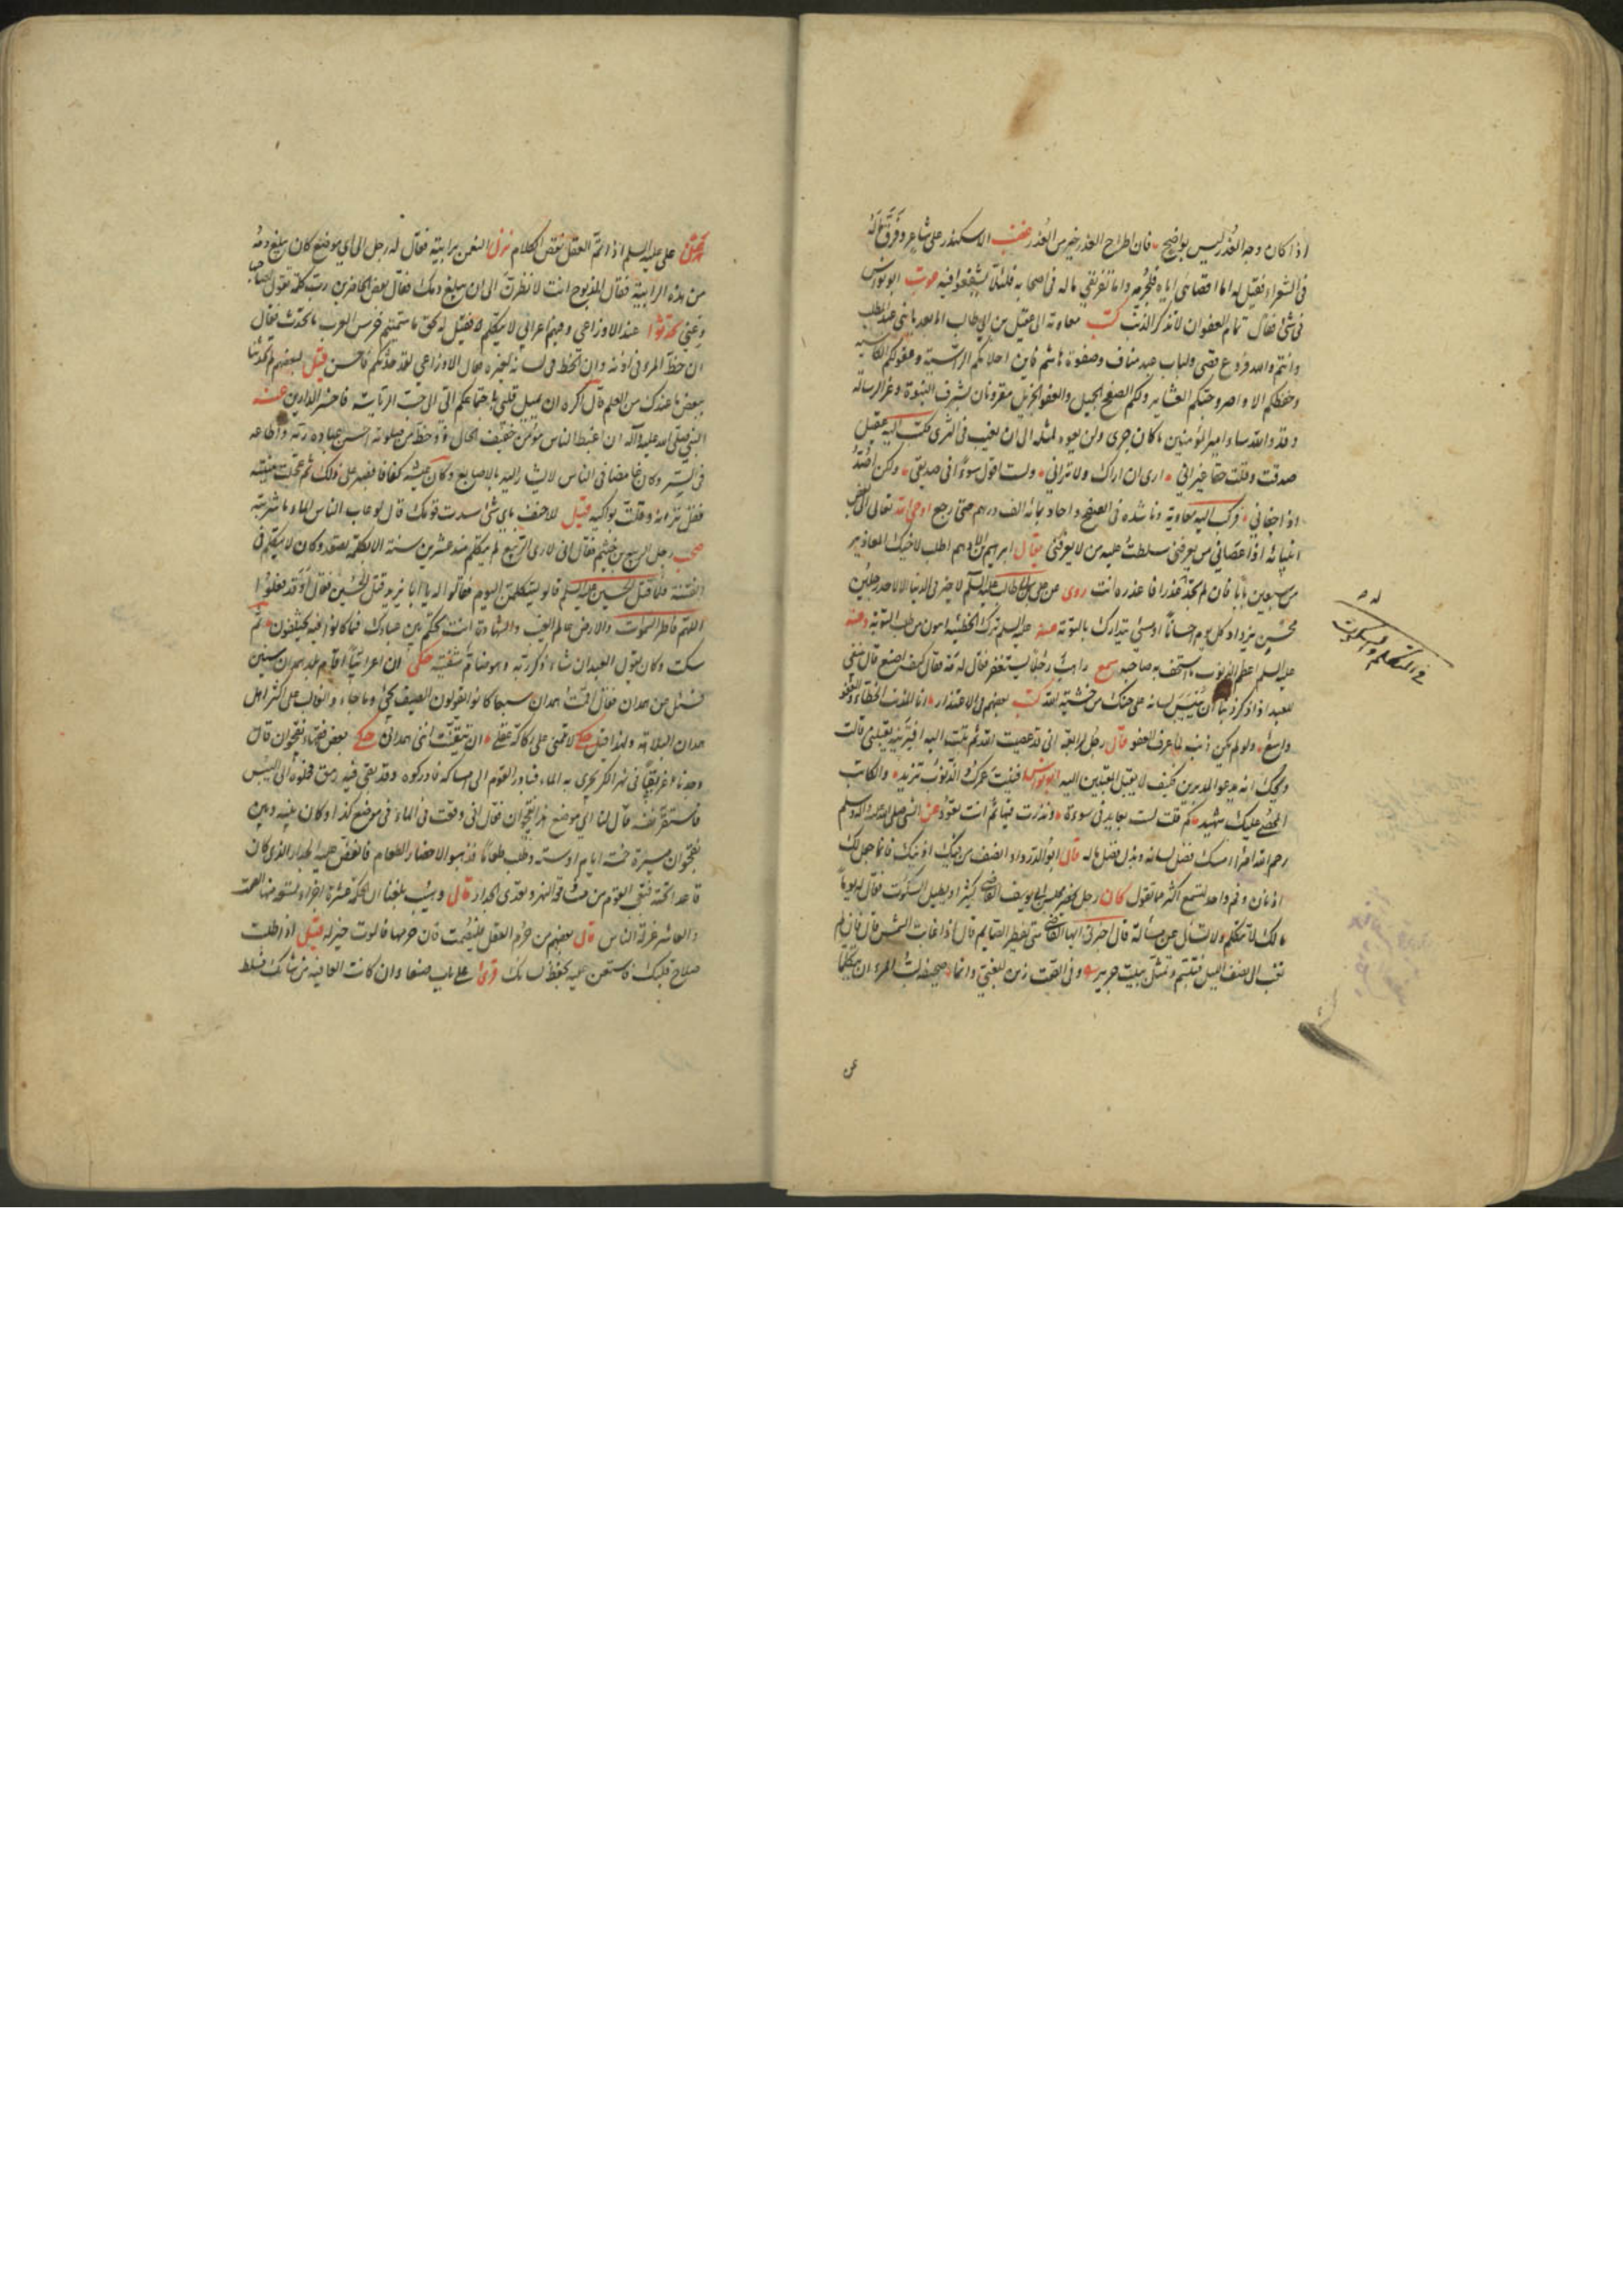 اذا كان وجه العذر ليس بواضح فان اطراح العذر خير من العذر غضب الاسكندر على شاعر وفرق ماله
فى الشعراء فقيل له اما اقصائى اياه فلجرمه واما تفريقى ماله فى اصحابه فلئلا يشفعوا فيه
فى شئ فقال تمام العفو ان لا تذكر الذنب كتب معاوية الى عقيل بن ابي طالب اما بعد يا بني عبد المطلب
وانتم والله فروع قصى ولباب عبد مناف وصفوة هاشم فاين احلامكم الراسية وعقولكم الكاسية
وحفظكم الاواصر وحبكم العشاير ولكم الصفح الجميل والعفو الجزيل مقرونان بشرف النبوة وعز الرسالة
وقد والله ساء امير المؤمنين ما كان جرى ولن يعود لمثله الى ان يغيب فى الثرى فكتب اليه عقيل
صدقت وقلت حقا غير اني ارى ان لا اراك ولا تراني ولست اقول سوءا فى صديقي ولكن اصد
اذا جفاني فركب اليه معاوية وناشده فى الصفح واجازه بمائة الف درهم حتى رجع اوحى الله تعالى الى بعض
انبيائه اذا عصاني من يعرفني سلطت عليه من لا يعرفني يقال ابراهيم بن الادهم اطلب لاخيك المعاذير
من سبعين بابا فان لم تجد عذرا فاعذره انت روى عن على بن ابي طالب عليه السلم لا خير فى الدنيا الا لاحد رجلين
محسن يزداد كل يوم احسانا او مسئ يتدارك بالتوبة عنه عليه السلم ترك الخطيئة اهون من طلب التوبة وعنه
عليه السلم اعظم الذنوب ما استخف به صاحبه سمع راهب رجلا يستغفر فقال له قال ينبغى
للعبد اذا ذكر ذنبا ان ييبس لسانه على حنكه من خشية الله كتب بعضهم فى الاعتذار انا المذنب الخطاء والعفو
واسع ولو لم يكن ذنب لما عرف العفو قال رجل لرابعة انى قد عصيت الله ثم تبت اليه افترينه يقبلني قالت
ويحك انه يدعو المدبرين فكيف لا يقبل المقبلين اليه ابو نواس فنيت عمرك والذنوب تزيد والكاتب
المحصى عليك شهيد كم قلت لست بعايد فى سوءة ونذرت فيها ثم انت تعود عن النبي صلى الله عليه وآله وسلم
رحم الله امرءا امسك فضل لسانه وبذل فضل ماله قال ابو الدرداء انصف من فيك اذنيك فانما جعل لك
اذنان وفم واحد لتسمع اكثر مما تقول كان رجل يحضر مجلس ابي يوسف القاضى كثيرا ويطيل السكوت فقال له يوما
مالك لا تتكلم ولا تسأل عن مسألة قال اخبرنى ايها القاضى متى يفطر الصايم قال اذا غابت الشمس قال فان لم
تغب الى نصف الليل فتبسم وتمثل ببيت جرير وفى الصمت زين للغبي وانما صحيفة لب المرء ان يتكلما
عن
فى التكلم والسكوت
على عليه السلم اذا تم العقل نقص الكلام نزل النعمن برابية فقال له رجل الى اي موضع كان يبلغ دمه
من هذه الرابية فقال المذبوح انت لا نظرن الى ان يبلغ دمك فقال بعض الحاضرين رب كلمة تقول لصاحبها
دعني تحدثوا عند الاوزاعي وفيهم اعرابي لا يتكلم فقيل له بحق ما سميتم خرس العرب ما تحدث فقال
ان حظ المرء فى اذنه وان الحظ فى لسانه لغيره فقال الاوزاعي لقد حدثكم فاحسن قيل لبعضهم لم لا تحدثنا
ببعض ما عندك من العلم قال اكره ان يميل قلبي باجتماعكم الى الى حب الرئاسة فاخسر الدارين عنه
النبي صلى الله عليه وآله ان اغبط الناس مؤمن خفيف الحال ذو حظ من صلوته احسن عبادة ربه واطاعه
فى السر وكان غامضا فى الناس لا يشار اليه بالاصابع وكان عيشه كفافا فصبر على ذلك ثم عجلت منيته
فقل تراثه وقلت بواكيه قيل لاحنف باي شئ سدت قومك قال لو عاب الناس الماء ما شربته
صحب رجل الربيع بن خيثم فقال انى لارى الربيع لم يتكلم منذ عشرين سنة الا بكلمة تصعد وكان لا يتكلم فى
الفتنة فلما قتل الحسين عليه السلم قالوا ليتكلمن اليوم فقالوا له يا ابا يزيد قتل الحسين فقال اوقد فعلوا
اللهم فاطر السموات والارض عالم الغيب والشهادة انت تحكم بين عبادك فيما كانوا فيه يختلفون ثم
سكت وكان يقول العبد ان شاء ذكر ربه وهو ضام شفتيه حكى ان اعرابيا اقام بهمدان سنين
فسئل عن همدان فقال اقمت بهمدان سبعا كانوا يقولون الصيف يجئ وما جاء والغالب على اكثر اهل
همدان البلاهة ولهذا قيل لا تلمني على ركاكة عقلي ان تيقنت انني همدانى حكى بعض فقهاء نقجوان قال
وجدنا غريقا فى نهر الكر يجرى به الماء فبادر القوم الى امساكه فادركوه وقد بقي فيه رمق فحملوه الى اليبس
فاستقر نفسه قال لنا اي موضع هذا نقجوان فقال انى وقعت فى الماء فى موضع كذا وكان بينه وبين
نقجوان مسيرة خمسة ايام او ستة وطلب طعاما فذهبوا لاحضار الطعام فانقض عليه الجدار الذى كان
قاعدا تحته فتعجب القوم من مشاقة النهر وتعدى الجدار قال وهيب بلغنا ان الحكمة عشرة اجزاء تسعة منها الصمت
والعاشر عزلة الناس قال بعضهم من حرم العقل فليصمت فان حرمها فالموت خير له قيل اذا طلبت
صلاح قلبك فاستعن عليه بحفظ لسانك قرئ على باب صنعا وان كانت العافية من شانك فسلط